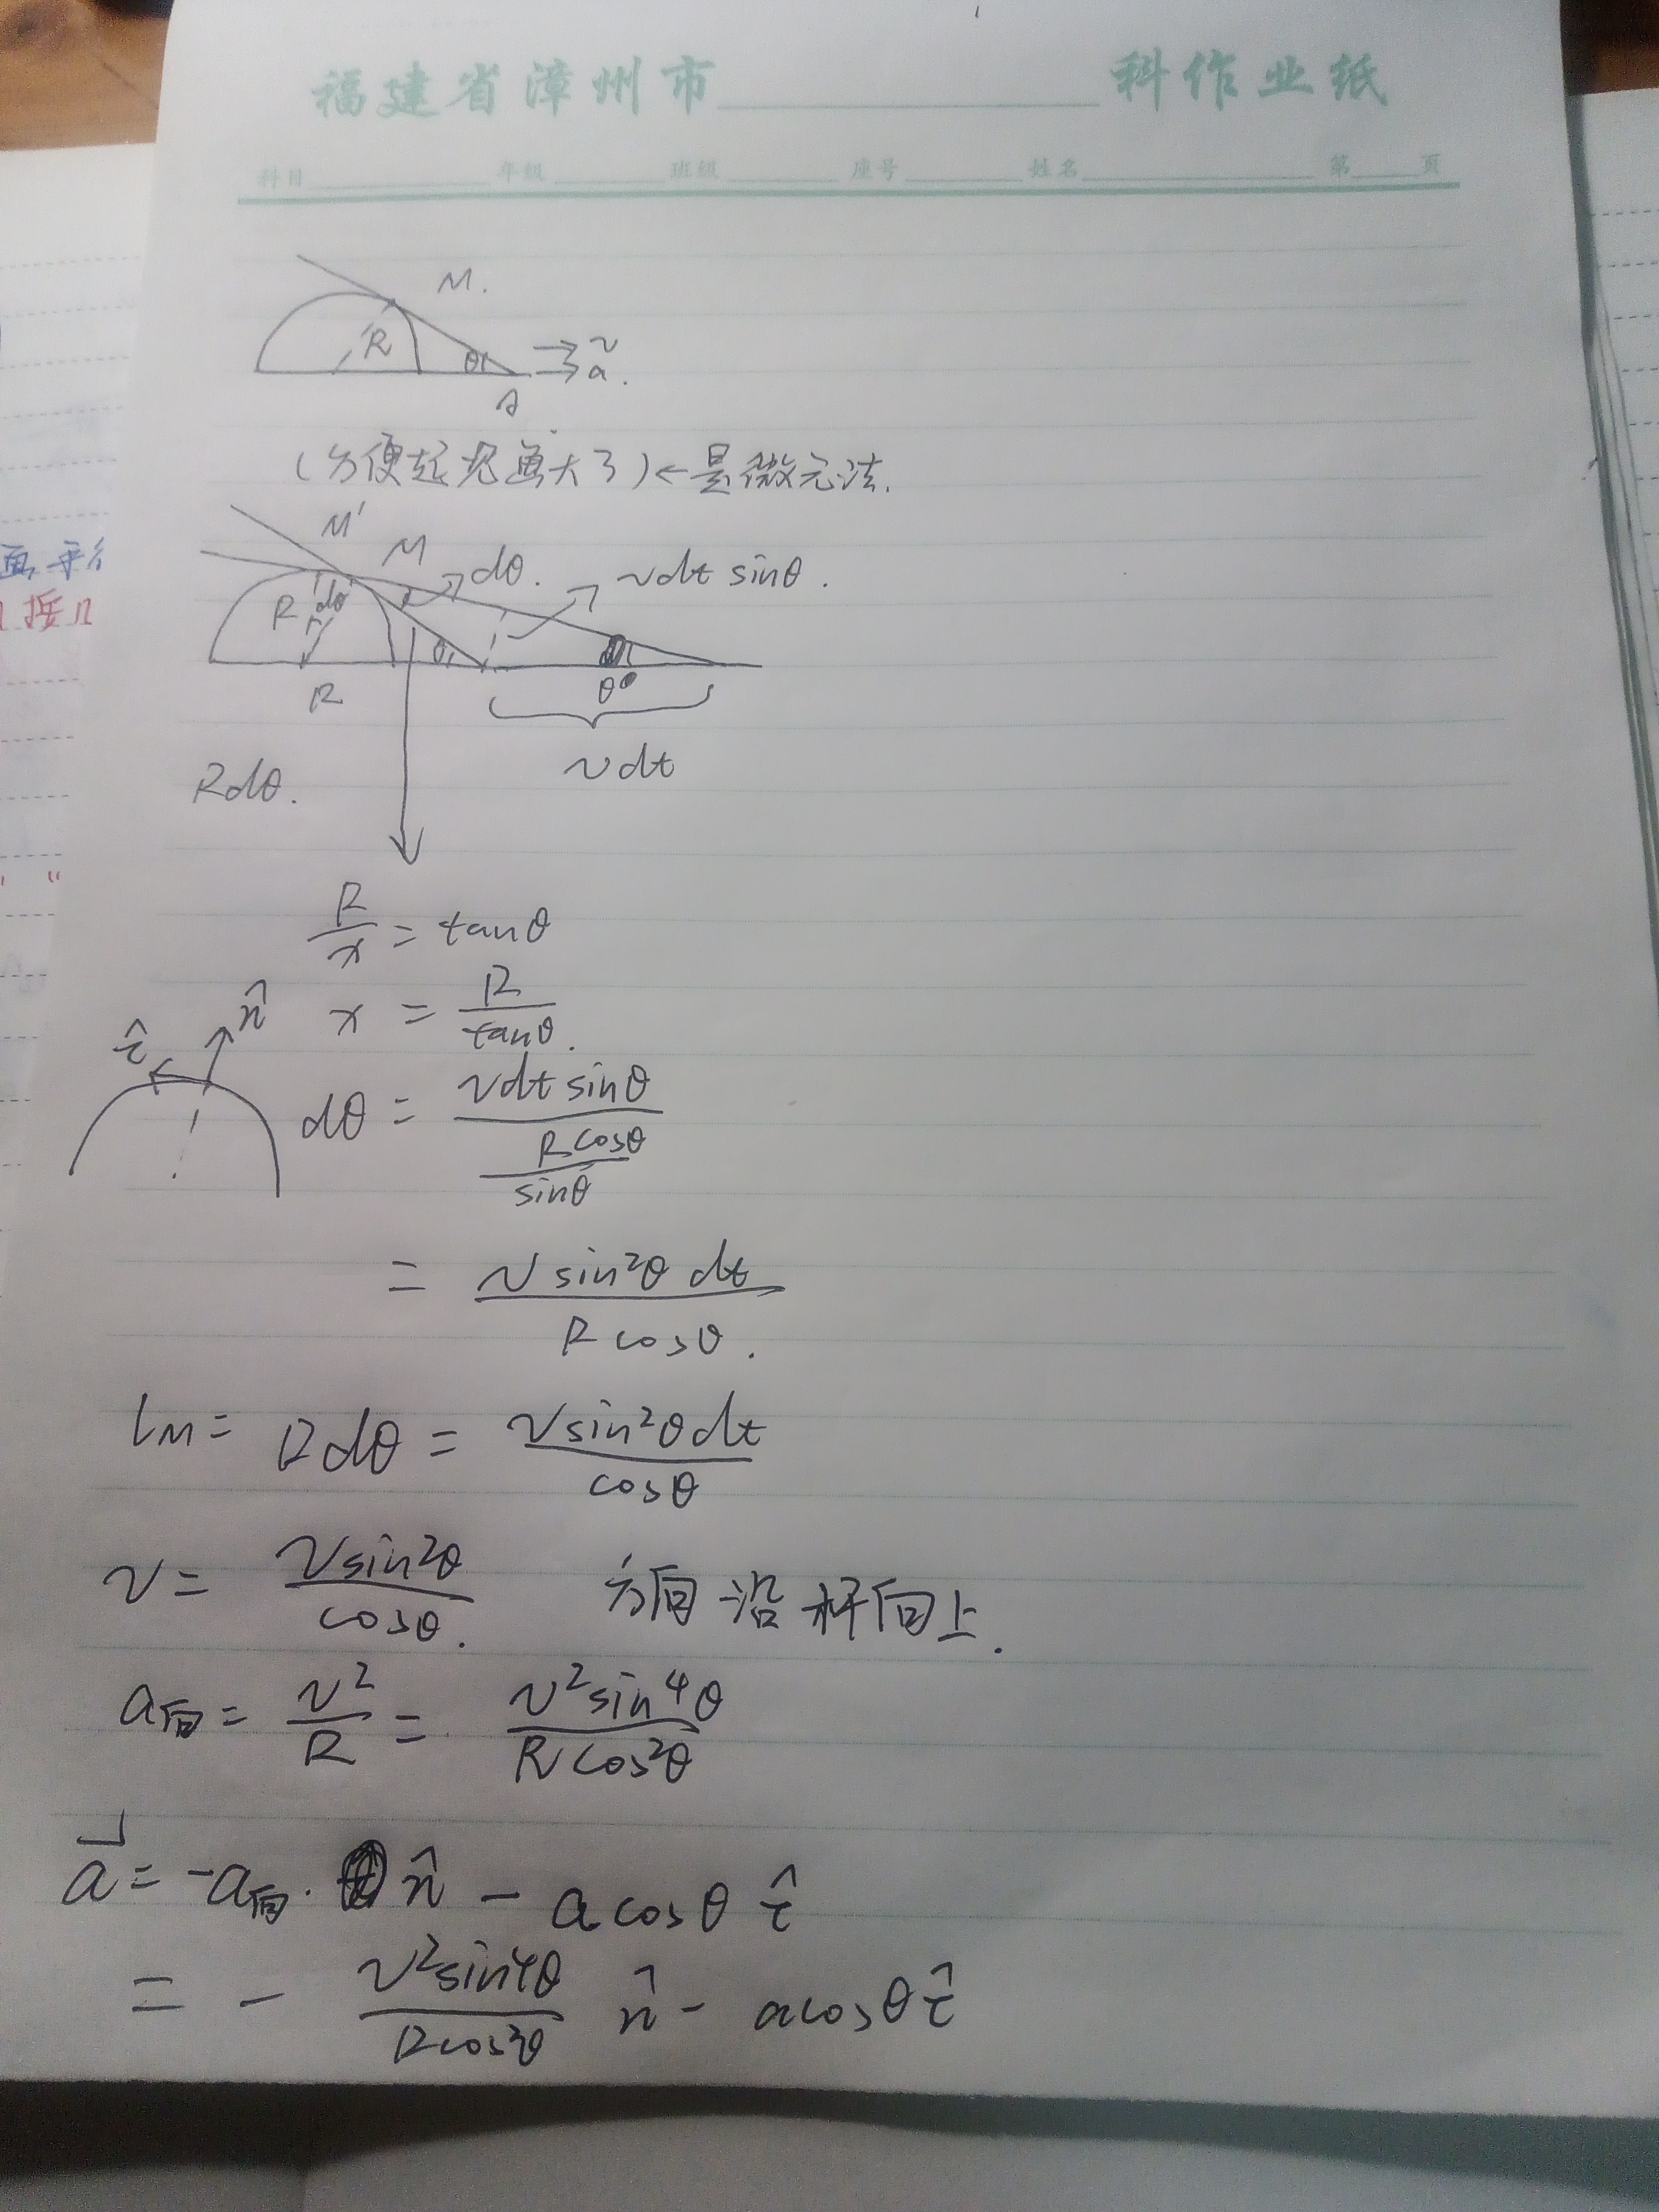 福建省漳州市 科作业纸
科目 年级 班级 座号 姓名 第 页
M.
R θ v
a.
A
(方便起见画大了)←是微元法.
M'
M dθ. vdt sinθ.
R dθ
θ θ
R
vdt
Rdθ.
R/x = tanθ
n̂ x = R/tanθ.
τ̂
dθ = vdt sinθ / (Rcosθ/sinθ)
= v sin²θ dt / R cosθ.
lM = Rdθ = vsin²θdt / cosθ
v = vsin²θ / cosθ. 方向沿杆向上.
a向 = v²/R = v²sin⁴θ / Rcos²θ
a⃗ = -a向· n̂ - acosθ τ̂
= - v²sin⁴θ / Rcos²θ n̂ - acosθ τ̂